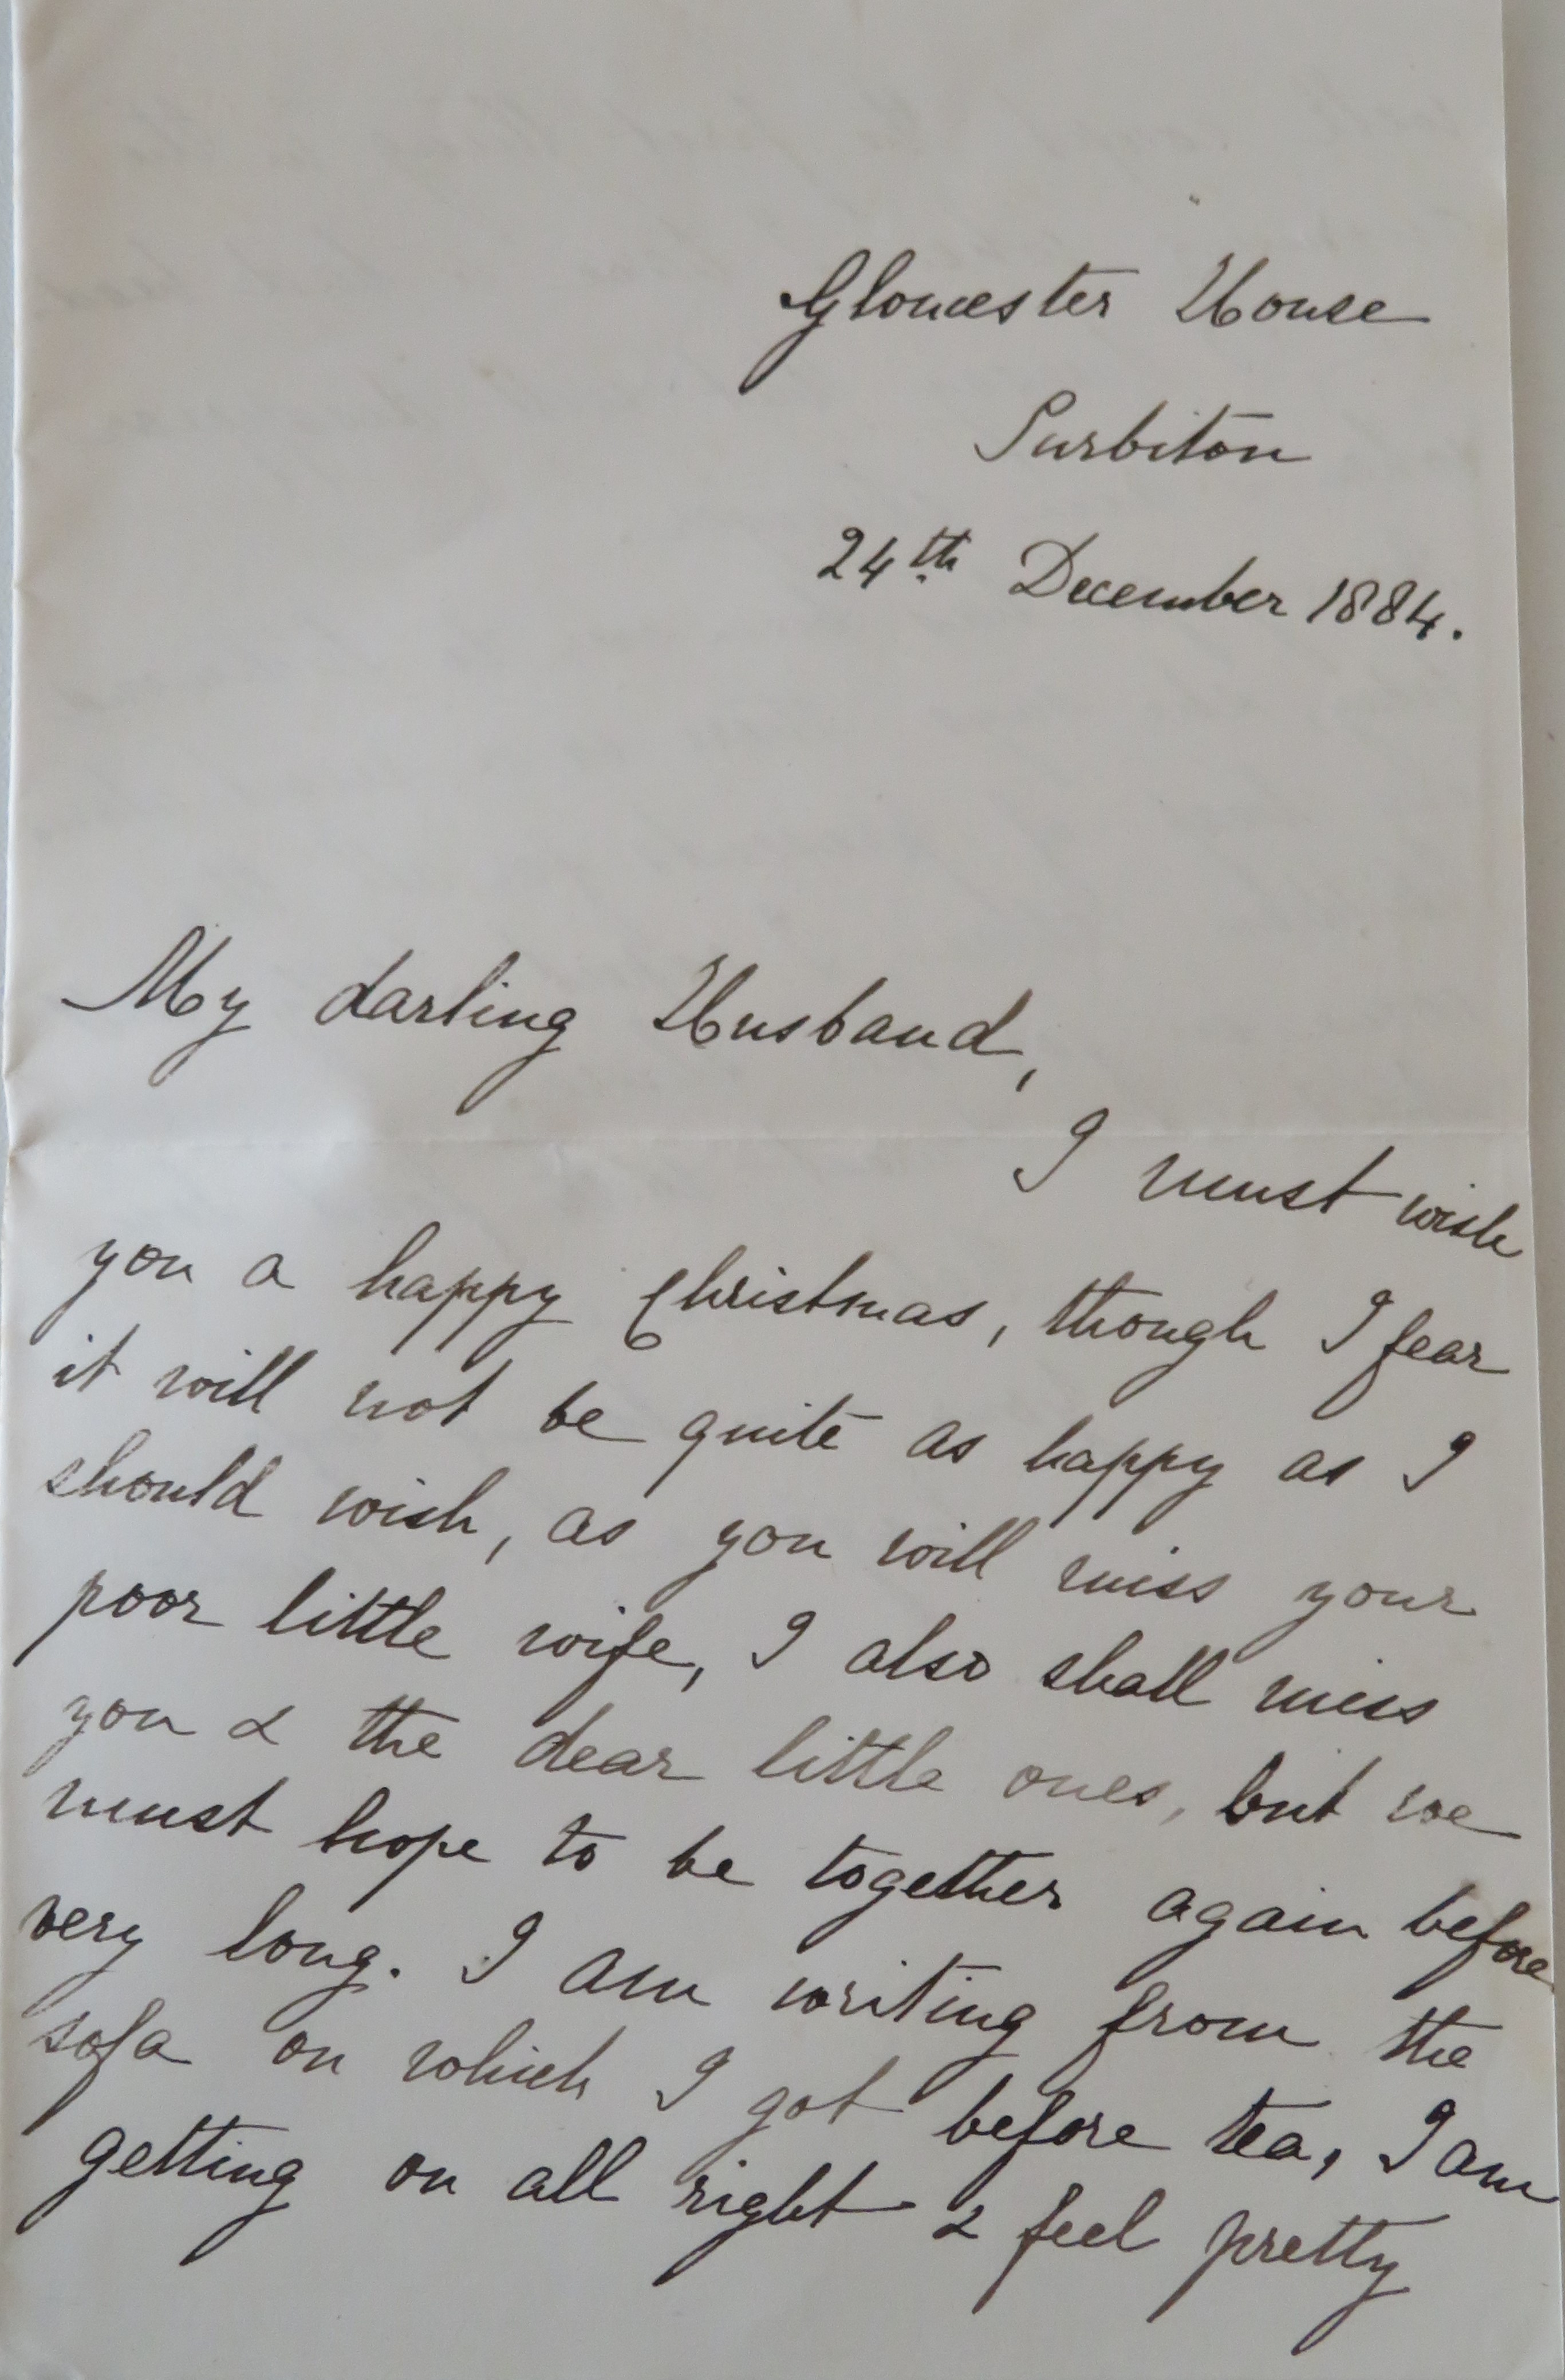 Gloucester House
Surbiton
24th December 1884.
My darling Husband,
I must wish
you a happy Christmas, though I fear
it will not be quite as happy as I
should wish, as you will miss your
poor little wife, I also shall miss
you & the dear little ones, but we
must hope to be together again before
very long. I am writing from the
sofa on which I got before tea, I am
getting on all right & feel pretty